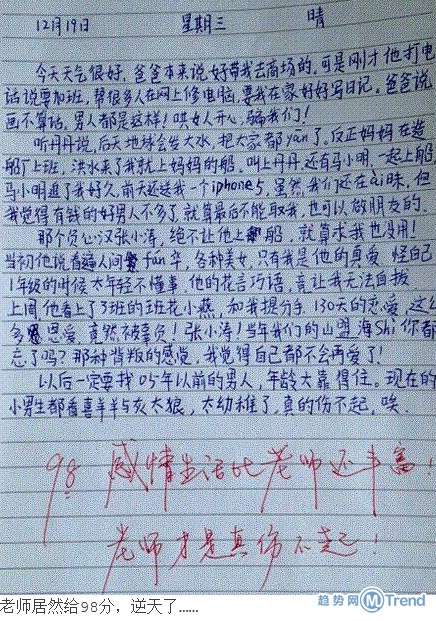 12月19日 星期三 晴
今天天气很好，爸爸本来说好带我去商场的，可是刚才他打电
话说要加班，帮很多人在网上修电脑，要我在家好好写日记。爸爸说
画不算话，男人都是这样！哄女人开心，骗我们！
听丹丹说，后天地球会发大水，把大家都yān了。反正妈妈在造
船厂上班，洪水来了我就上妈妈的船，叫上丹丹还有马小明，一起上船。
马小明追了我好久，前天还送我一个iphone5，虽然我们还在ài昧，但
我觉得有钱的好男人不多了，就算最后不能取我，也可以做朋友的。
那个负心汉张小涛，绝不让他上船，就算求我也没用！
当初他说看遍人间fán华，各种美女，只有我是他的真爱，怪自己
1年级的时候太年轻不懂事，他的花言巧语，竟让我无法自拔
上周他看上了3班的班花小燕，和我提分手，130天的恋爱，这么
多恩爱，竟然被辜负！张小涛！当年我们的山盟海Shi你都
忘了吗？那种背叛的感觉，我觉得自己都不会再爱了！
以后一定要找05年以前的男人，年龄大靠得住。现在的
小男生都看喜羊羊与灰太狼，太幼稚了，真的伤不起，唉。
98 感情生活比老师还丰富！
老师才是真伤不起！
老师居然给98分，逆天了……
趋势网 M Trend